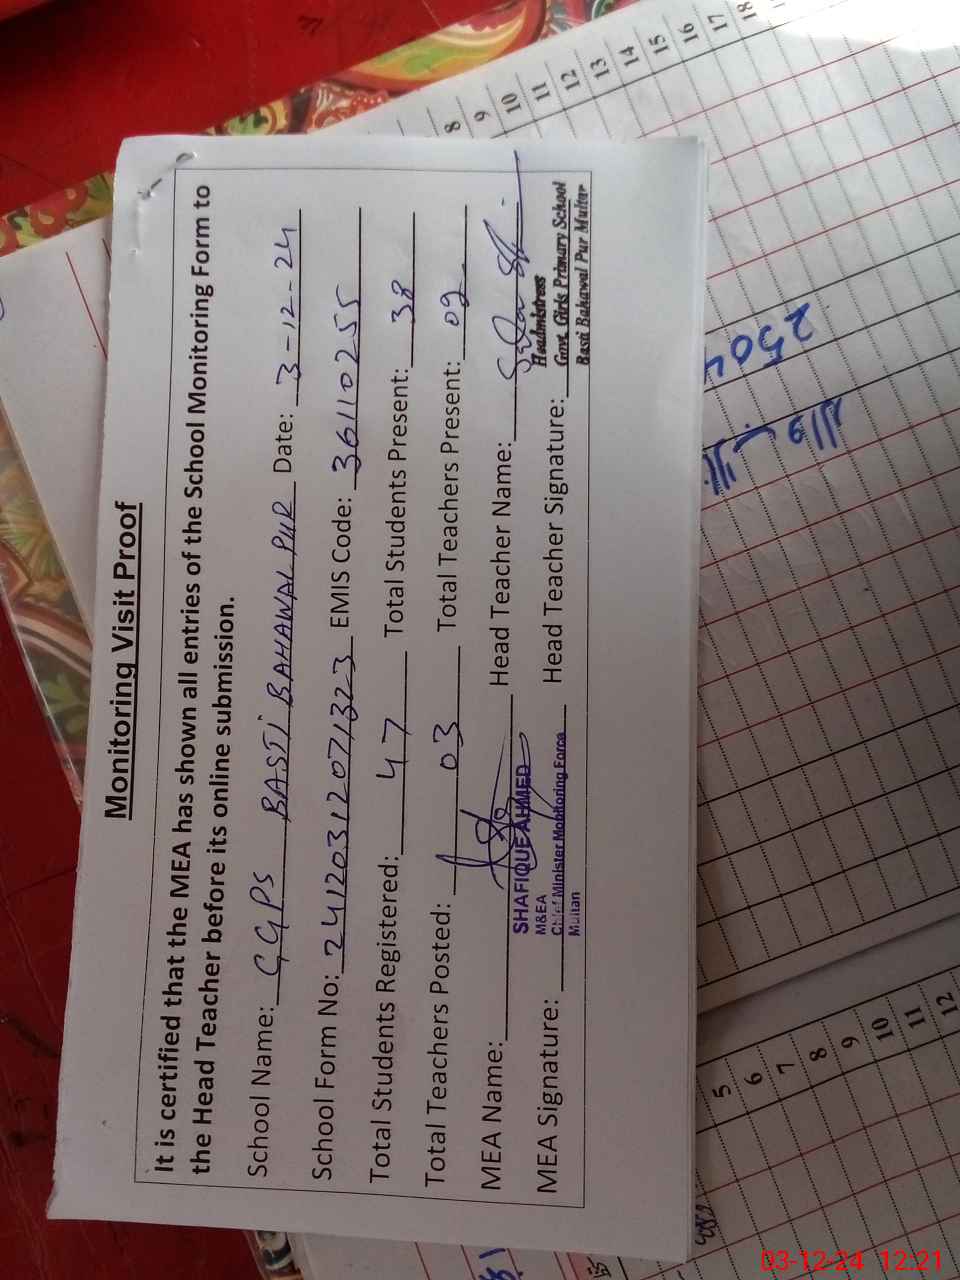 Monitoring Visit Proof
It is certified that the MEA has shown all entries of the School Monitoring Form to
the Head Teacher before its online submission.
School Name: GGPS BASTI BAHAWAL PUR Date: 3-12-24
School Form No: 24120312071323 EMIS Code: 36110255
Total Students Registered: 47 Total Students Present: 38
Total Teachers Posted: 03 Total Teachers Present: 02
MEA Name: Head Teacher Name:
SHAFIQUE AHMED
M&EA
Chief Minister Monitoring Force
Multan
Headmistress
Govt. Girls Primary School
Basti Bahawal Pur Multan
MEA Signature: Head Teacher Signature:
8
9
10
11
12
13
14
15
16
17
18
2504
5
6
7
8
9
10
11
12
03-12-24 12:21